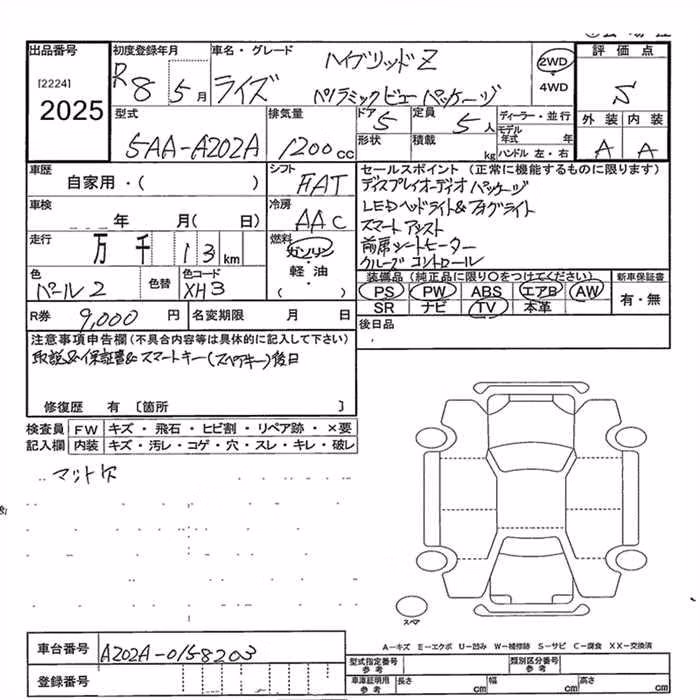 出品番号
[2224]
2025
初度登録年月
R8 5月
車名・グレード
ハイブリッドZ
ライズ パノラミックビューパッケージ
2WD
・
4WD
評価点
S
外装 内装
A A
型式
5AA-A202A
排気量
1200cc
ドア 5
形状
定員 5人
積載 kg
ディーラー・並行
モデル年式 年
ハンドル 左・右
車歴
自家用・( )
車検
年 月( 日)
走行
万 千 13 km
色
パール2
色替
色コード
XH3
シフト
FAT
冷房
AAC
燃料
ガソリン
・
軽油
・
( )
セールスポイント(正常に機能するものに限ります)
ディスプレイオーディオパッケージ
LEDヘッドライト&フォグライト
スマートアシスト
前席シートヒーター
クルーズコントロール
装備品(純正品に限り○をつけてください)
PS PW ABS エアB AW
SR ナビ TV 本革
新車保証書
有・無
R券 9,000 円
名変期限 月 日
後日品
注意事項申告欄(不具合内容等は具体的に記入して下さい)
取説&保証書&スマートキー(スペアキー)後日
修復歴 有 〔箇所 〕
検査員記入欄
FW キズ・飛石・ヒビ割・リペア跡・×要
内装 キズ・汚レ・コゲ・穴・スレ・キレ・破レ
マット欠
スペア
車台番号 A202A-0158203
登録番号
A-キズ E-エクボ U-凹み W-補修跡 S-サビ C-腐食 XX-交換済
型式指定番号 参考
類別区分番号 参考
車庫証明用 参考
長さ cm 幅 cm 高さ cm